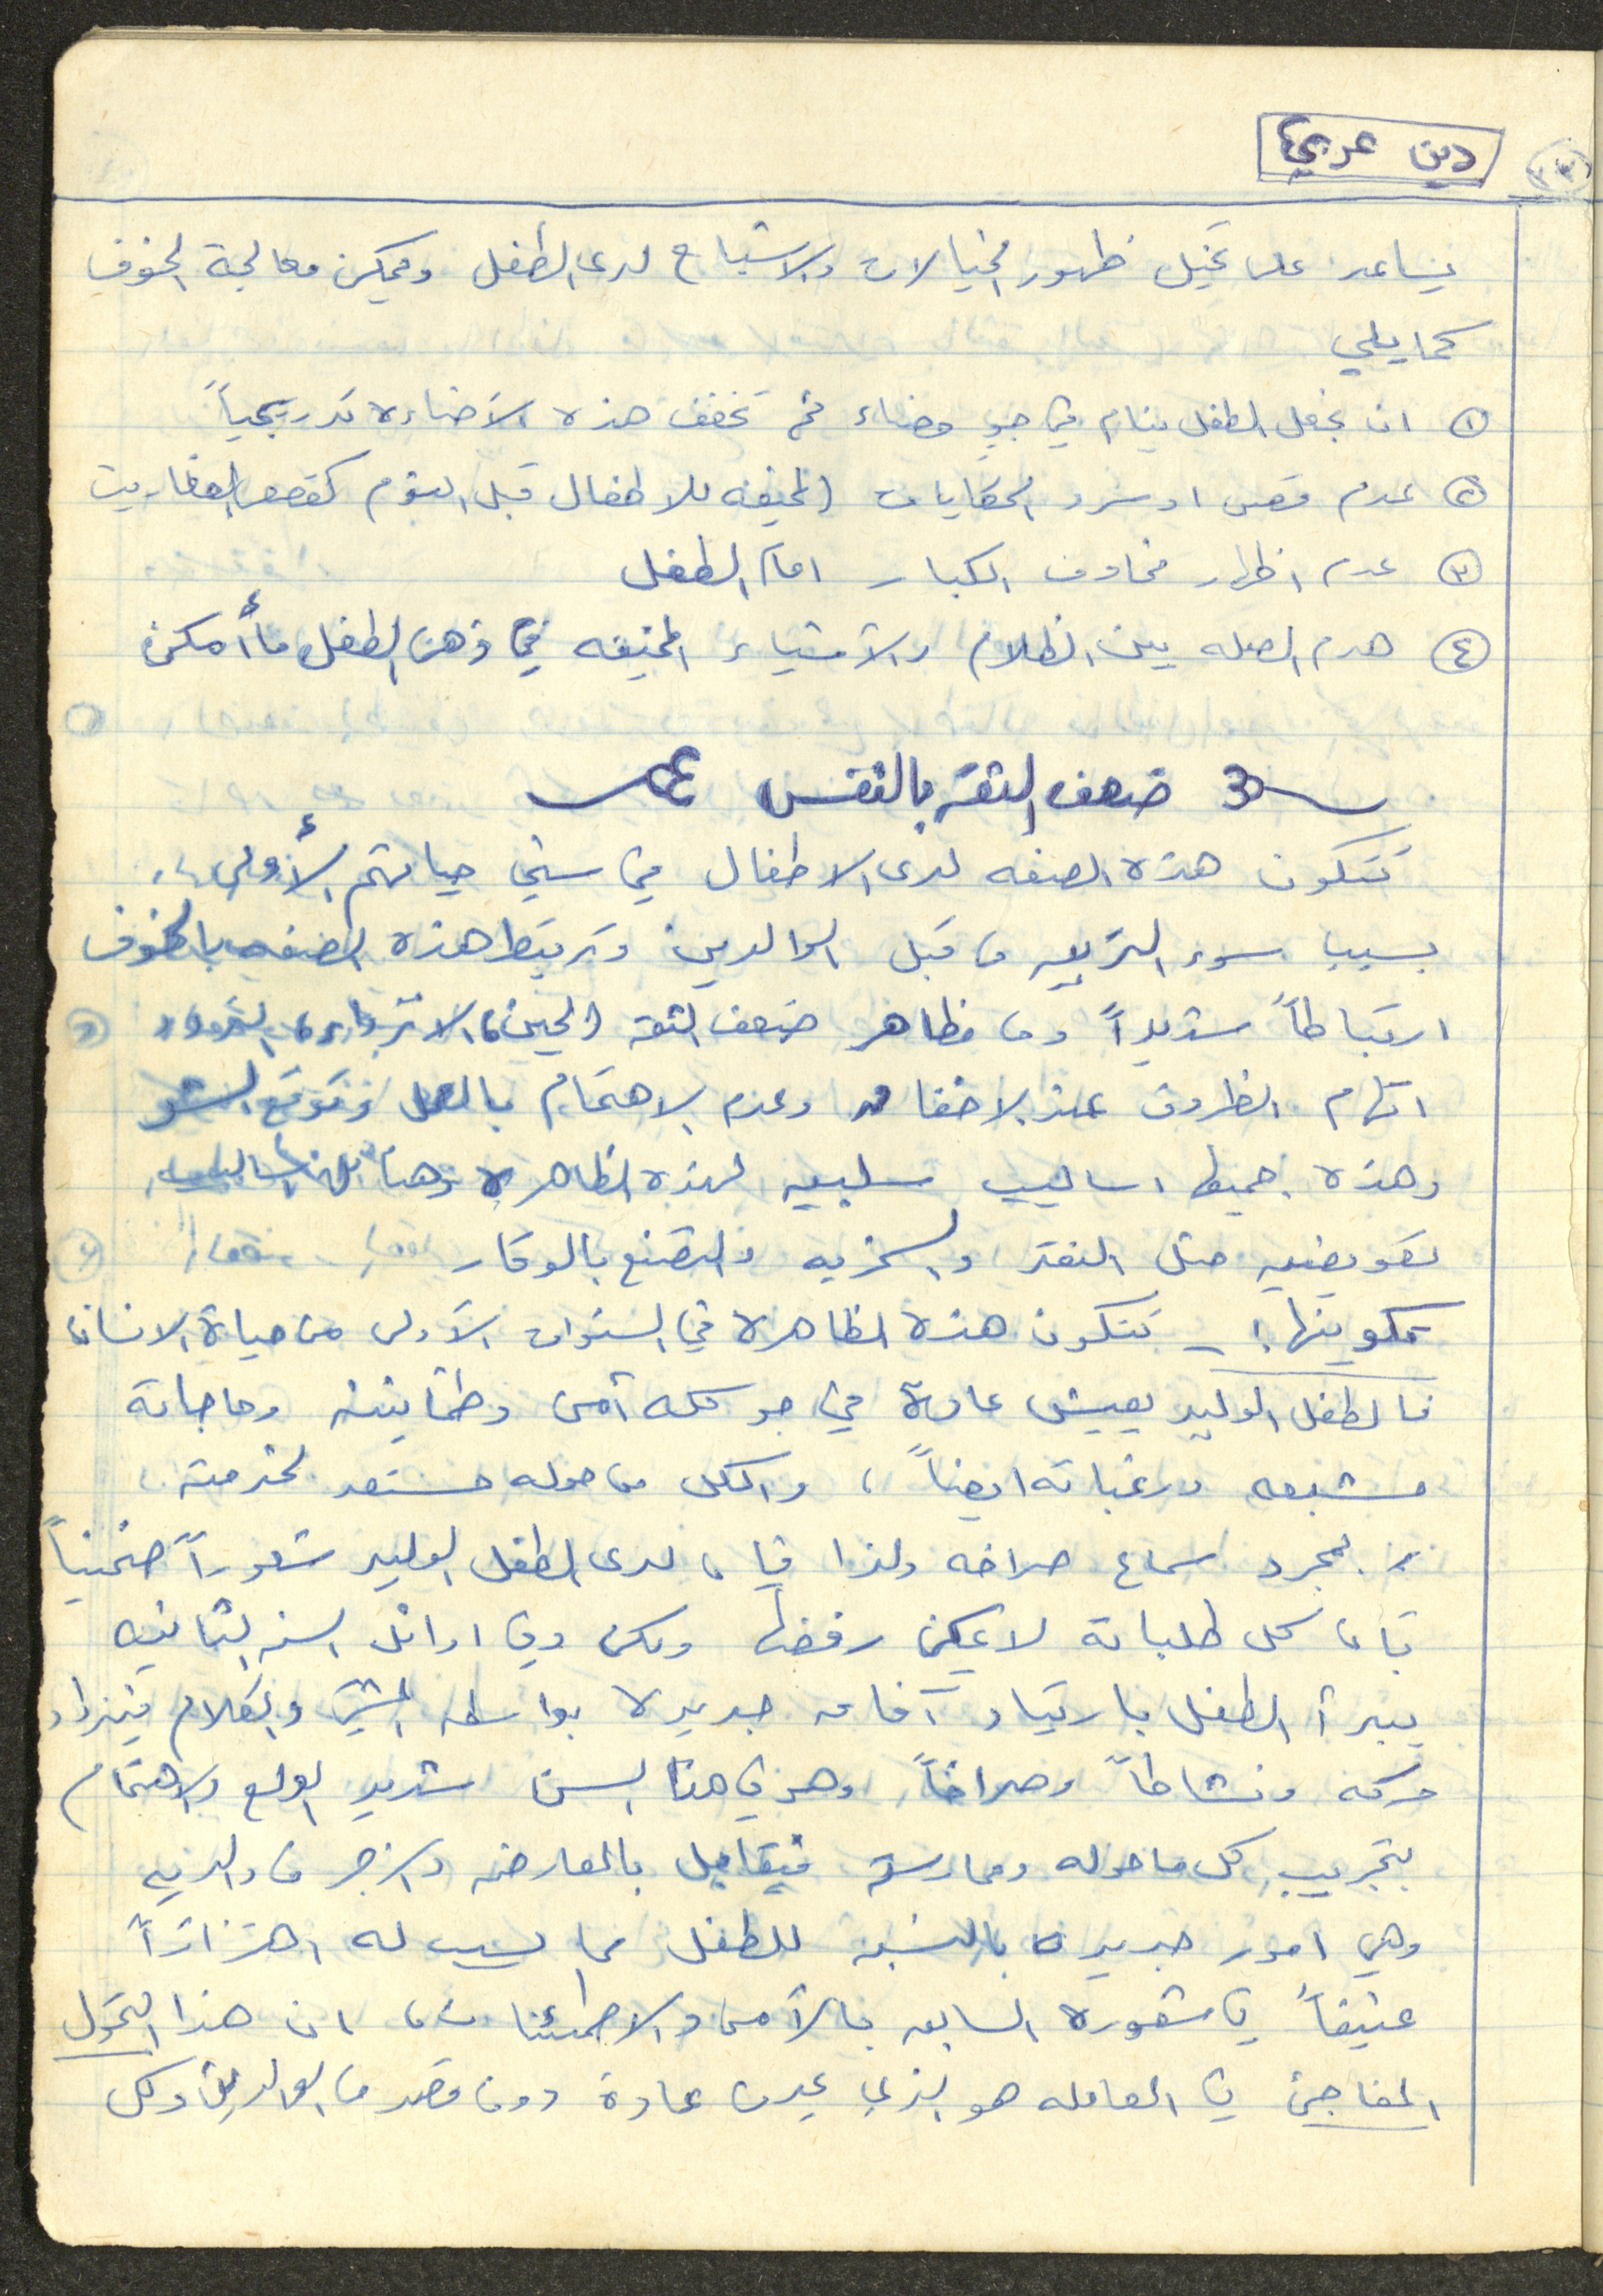 دين عربي
يساعد على تخيل ظهور الخيالات والاشباح لدى الطفل ويمكن معالجة الخوف
كما يلي
١ ان نجعل الطفل ينام في جو مضاء ثم تخفف هذه الأضاءة تدريجياً
٢ عدم قص او سرد الحكايات المخيفه للاطفال قبل النوم كقصص العفاريت
٣ عدم اظهار مخاوف الكبار امام الطفل
٤ هدم الصله بين الظلام والأشياء المخيفه في ذهن الطفل ما أمكن
ضعف الثقة بالنفس
تتكون هذه الصفه لدى الاطفال في سني حياتهم الأولى
بسبب سوء التربيه من قبل الوالدين وترتبط هذه الصفه بالخوف
ارتباطاً شديداً ومن مظاهر ضعف الثقة (الجبن، الانزواء، التردد
اتهام الظروف عند الاخفاق وعدم الاهتمام بالعمل وتوقع السوء
وهذه جميعها اساليب سلبيه لهذه الظاهرة وهناك اساليب
تعويضيه مثل النقد والسخريه والتصنع بالوقار
تكوينها :- تتكون هذه الظاهرة في السنوات الأولى من حياة الانسان
فالطفل الوليد يعيش عادة في جو كله أمن وطمأنينة وحاجاته
مشبعه ورغباته ايضاً، والكل من حوله مستعد لخدمته
بمجرد سماع صراخه ولذا فإن لدى الطفل الوليد شعوراً ضمنياً
بأن كل طلباته لا يمكن رفضها ولكن وفي اوائل السنه الثانيه
يبدأ الطفل بارتياد آفاق جديدة بواسطه المشي والكلام فيزداد
حركه ونشاطاً وصراخاً وهو في هذا السن شديد الولع والاهتمام
بتجريب كل ما حوله وممارسته فيقابل بالمعارضه والزجر من والديه
وهي امور جديدة بالنسبة للطفل مما يسبب له اهتزازاً
عنيفاً في شعوره السابق بالأمن والاطمئنان، ان هذا التحول
المفاجئ في المعامله هو الذي يحدث عادة دون قصد من الوالدين وكل